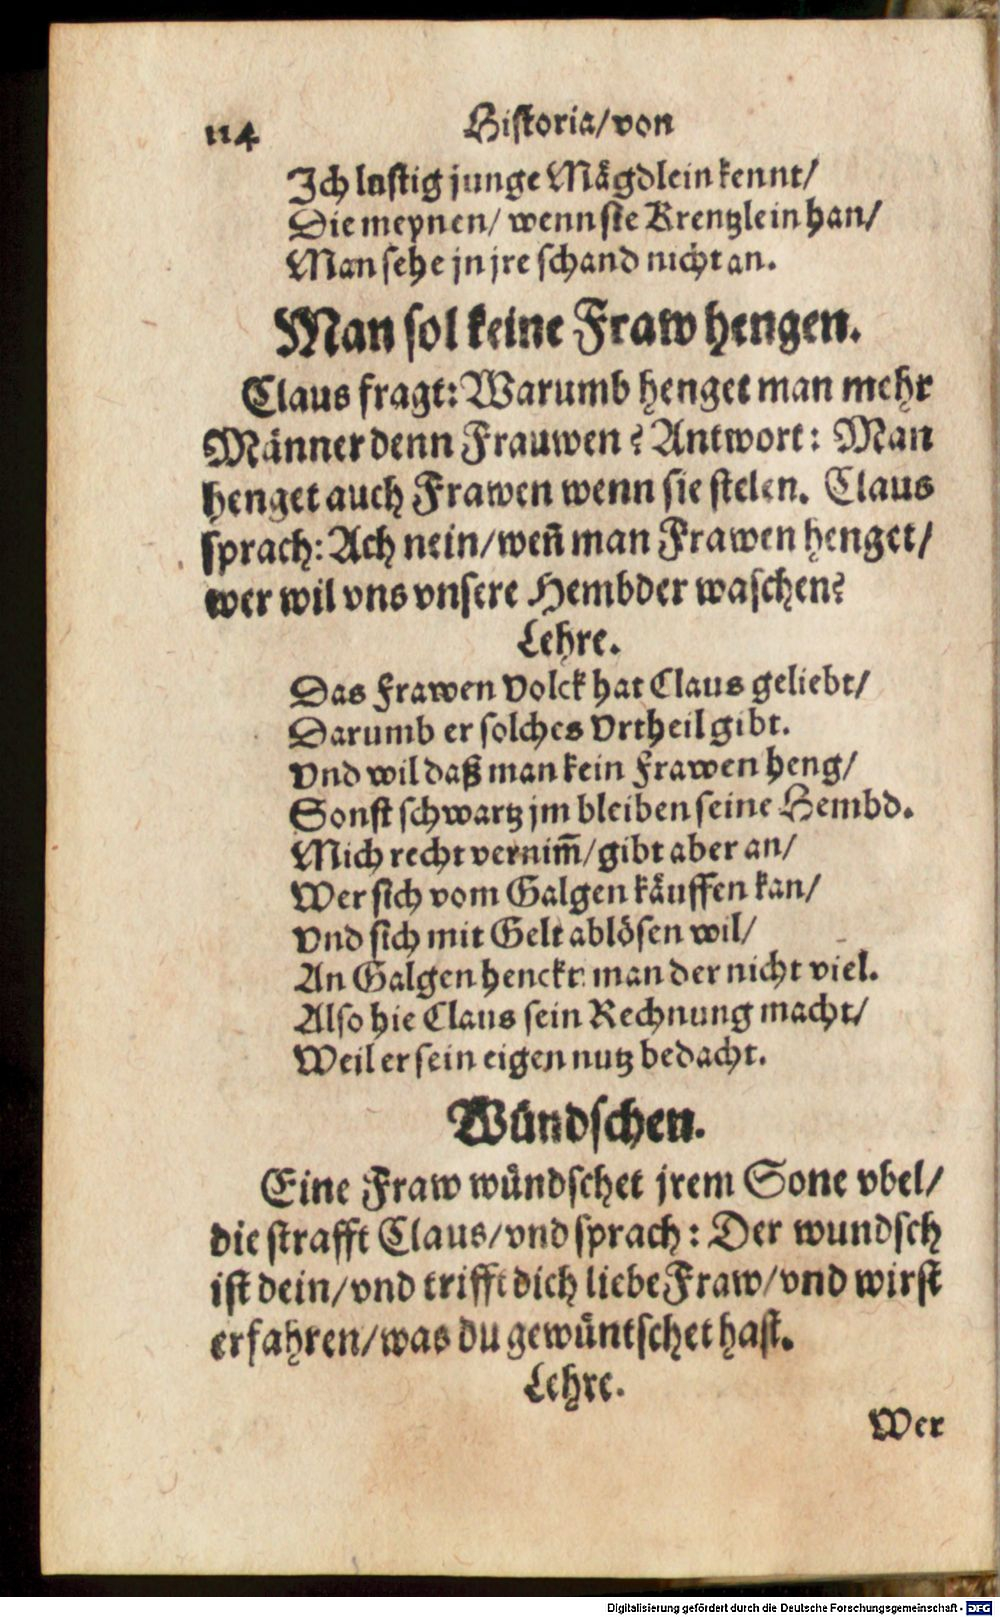 114 Historia/von
Ich lustig junge Mägdlein kennt/
Die meynen/ wenn sie Krentzlein han/
Man sehe jn jre schand nicht an.
Man sol keine Fraw hengen.
Claus fragt: Warumb henget man mehr
Männer denn Frauwen? Antwort: Man
henget auch Frawen wenn sie stelen. Claus
sprach: Ach nein/wen̄ man Frawen henget/
wer wil vns vnsere Hembder waschen?
Lehre.
Das Frawen Volck hat Claus geliebt/
Darumb er solches Vrtheil gibt.
Vnd wil daß man kein Frawen heng/
Sonst schwartz jm bleiben seine Hembd.
Mich recht vernim̄/gibt aber an/
Wer sich vom Galgen käuffen kan/
Vnd sich mit Gelt ablösen wil/
An Galgen henckt man der nicht viel.
Also hie Claus sein Rechnung macht/
Weil er sein eigen nutz bedacht.
Wündschen.
Eine Fraw wündschet jrem Sone vbel/
die strafft Claus/vnd sprach: Der wundsch
ist dein/vnd trifft dich liebe Fraw/vnd wirst
erfahren/was du gewüntschet hast.
Lehre.
Wer
Digitalisierung gefördert durch die Deutsche Forschungsgemeinschaft - DFG